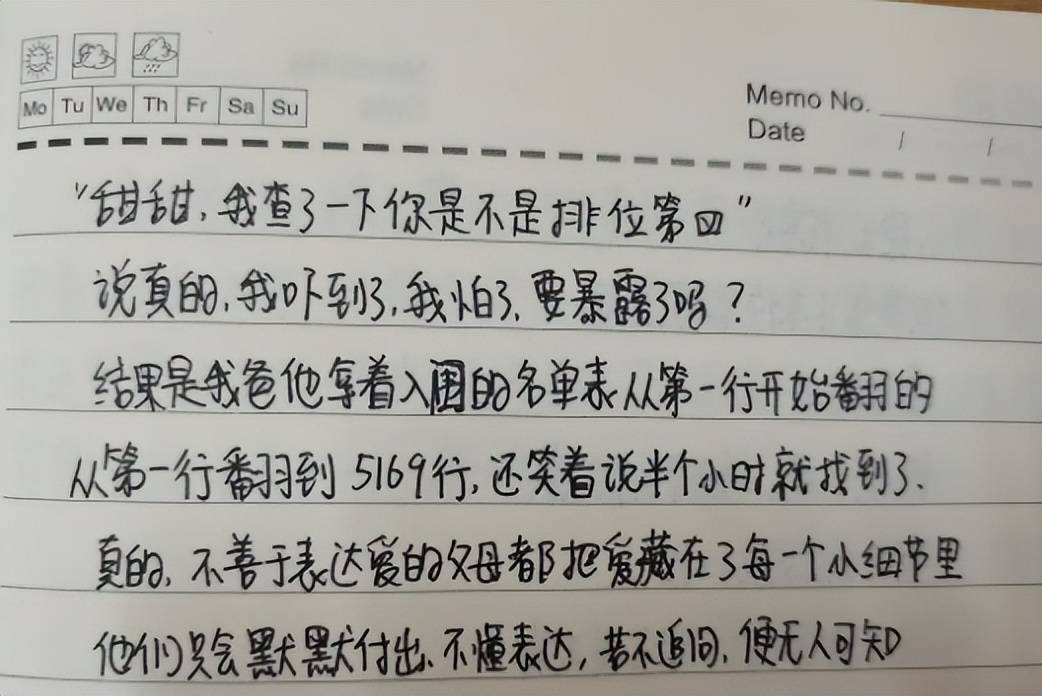 Mo Tu We Th Fr Sa Su
Memo No.
Date / /
"甜甜，我查了一下你是不是排位第四"
说真的，我吓到了，我怕了，要暴露了吗？
结果是我爸他拿着入围的名单表从第一行开始翻的
从第一行翻到5169行，还笑着说半个小时就找到了.
真的，不善于表达爱的父母都把爱藏在了每一个小细节里
他们只会默默付出、不懂表达，若不追问，便无人可知